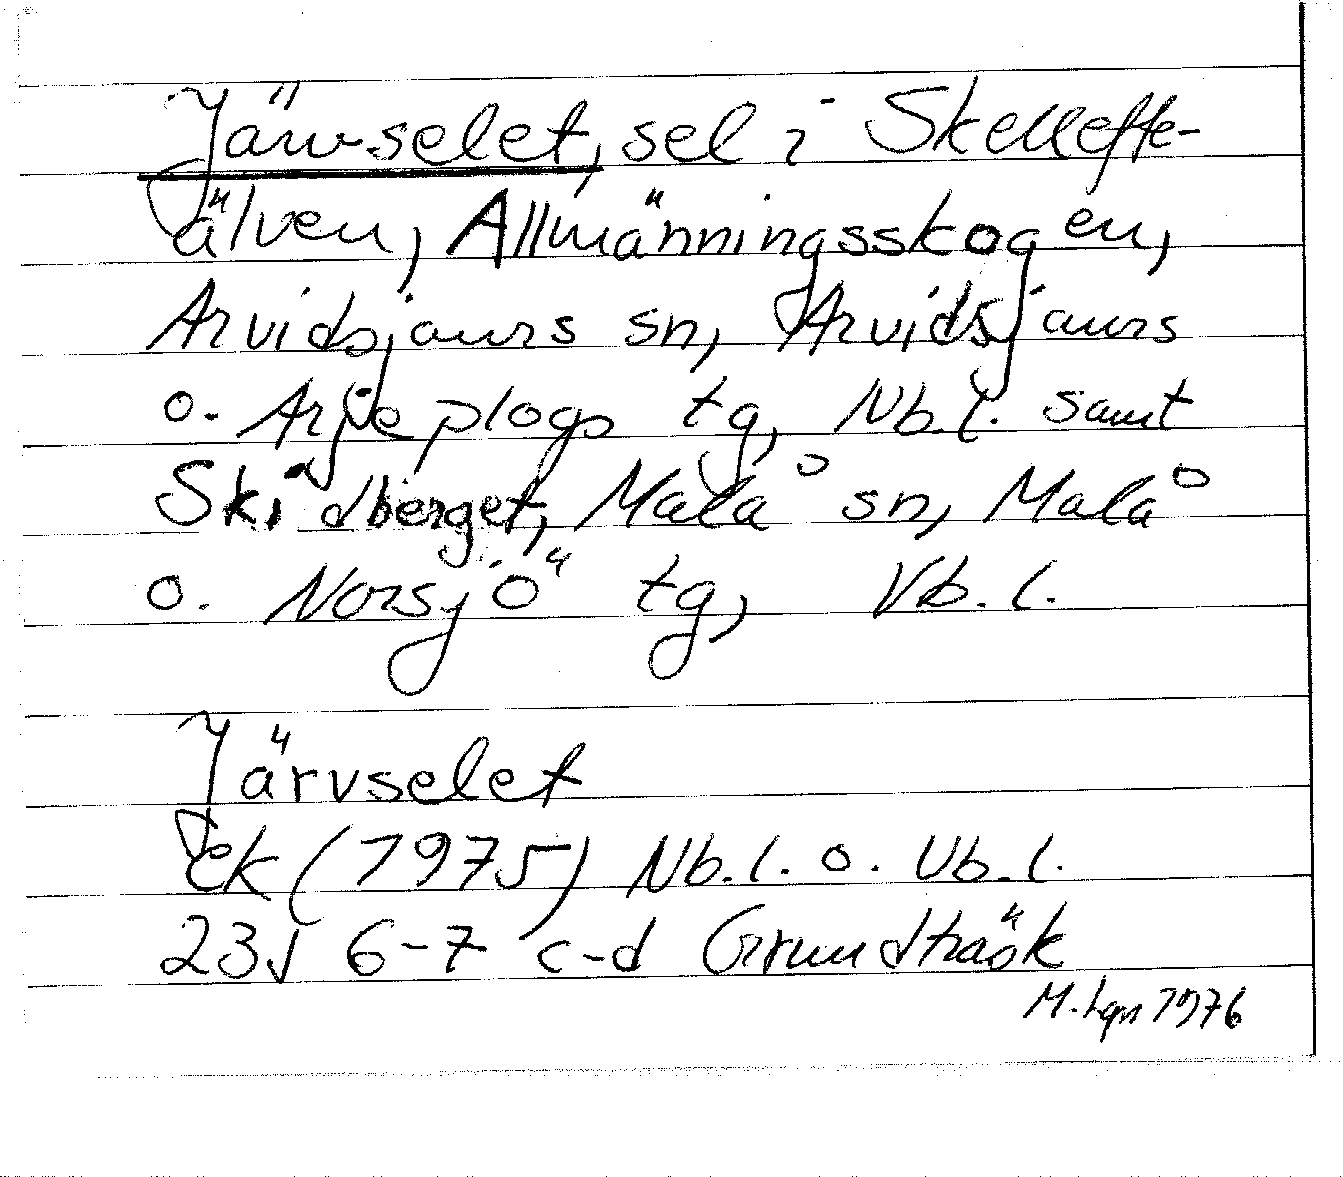 Järvselet, sel i Skellefte-
älven, Allmänningsskogen,
Arvidsjaurs sn, Arvidsjaurs
o. Arjeplogs tg, Nb.l. samt
Skidberget, Malå sn, Malå
o. Norsjö tg, Vb.l.
Järvselet
ek (1975) Nb.l. o. Vb.l.
23J 6-7 c-d Grundträsk
M. Lgn 1976